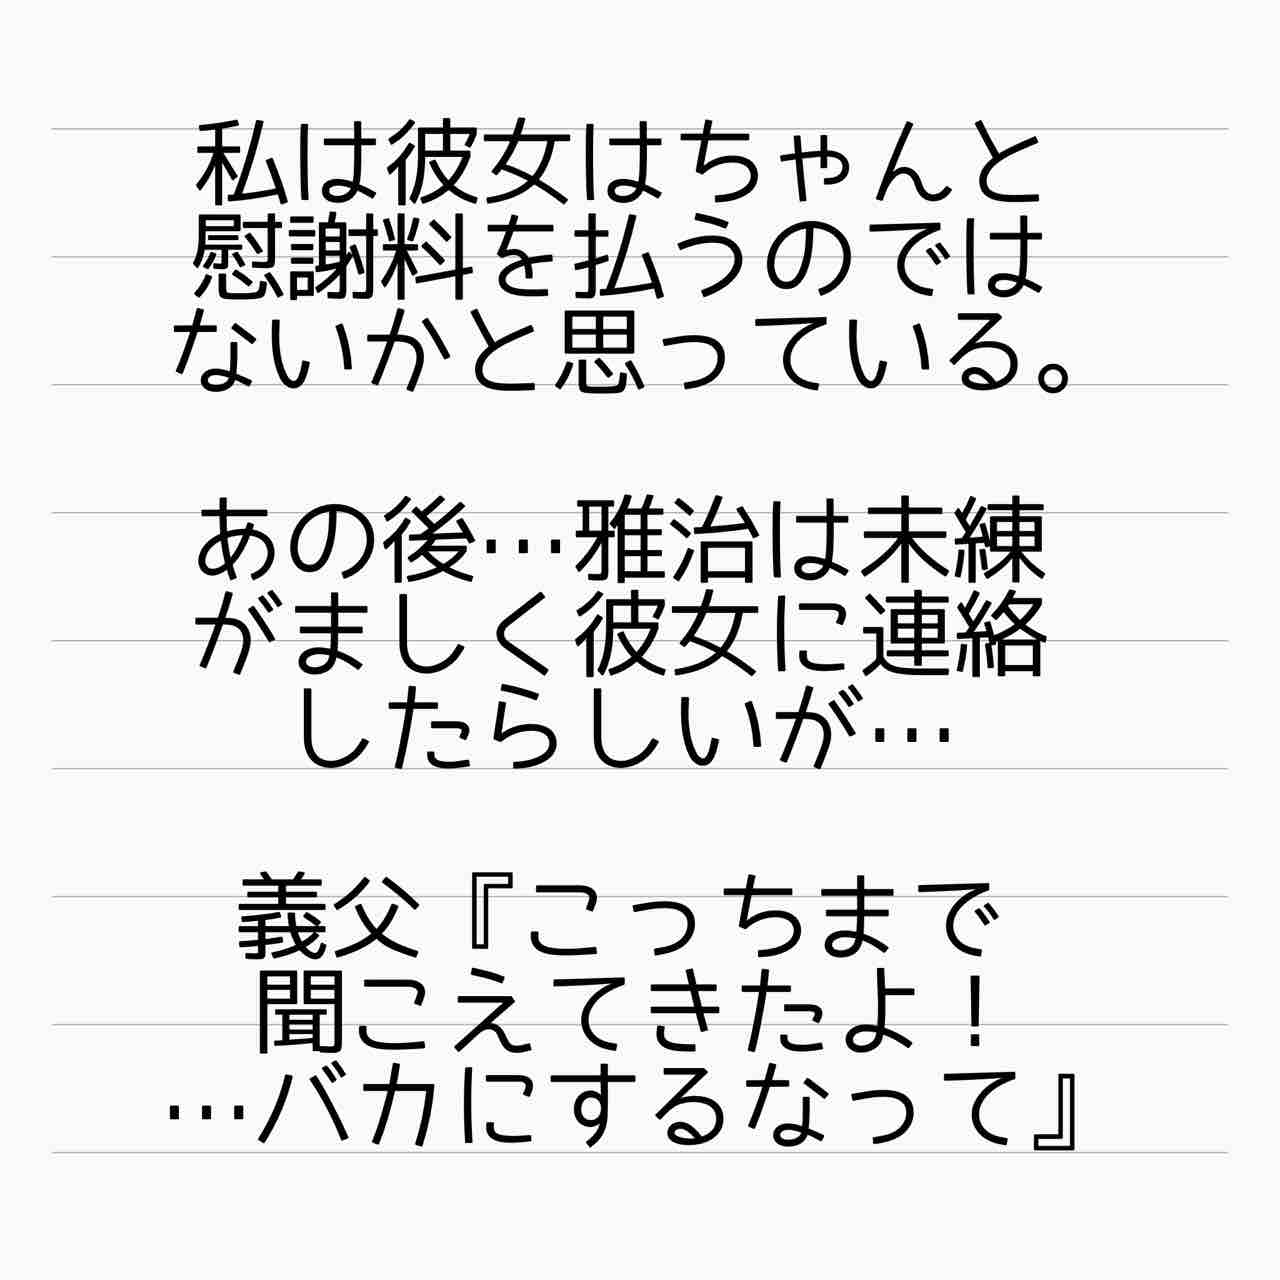 私は彼女はちゃんと
慰謝料を払うのでは
ないかと思っている。
あの後…雅治は未練
がましく彼女に連絡
したらしいが…
義父『こっちまで
聞こえてきたよ！
…バカにするなって』